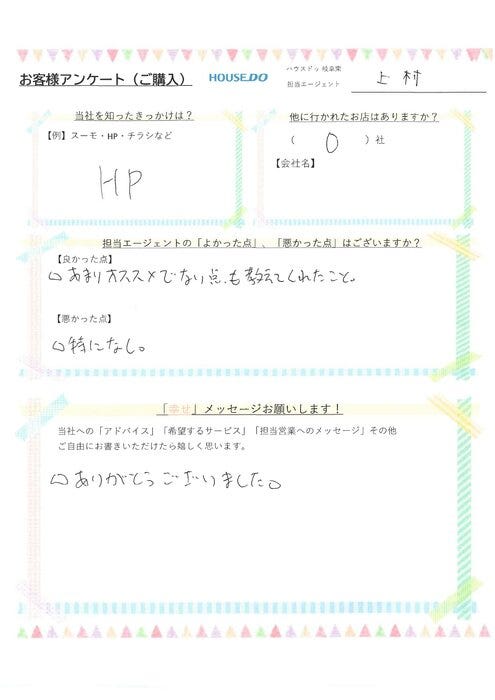 お客様アンケート（ご購入） HOUSEDO ハウスドゥ 岐阜東
担当エージェント 上村
当社を知ったきっかけは？
【例】スーモ・HP・チラシなど
HP
他に行かれたお店はありますか？
（ 0 ）社
【会社名】
担当エージェントの「よかった点」、「悪かった点」はございますか？
【良かった点】
○あまりオススメでない点も教えてくれたこと。
【悪かった点】
○特になし。
「幸せ」メッセージお願いします！
当社への「アドバイス」「希望するサービス」「担当営業へのメッセージ」その他
ご自由にお書きいただけたら嬉しく思います。
○ありがとうございました。